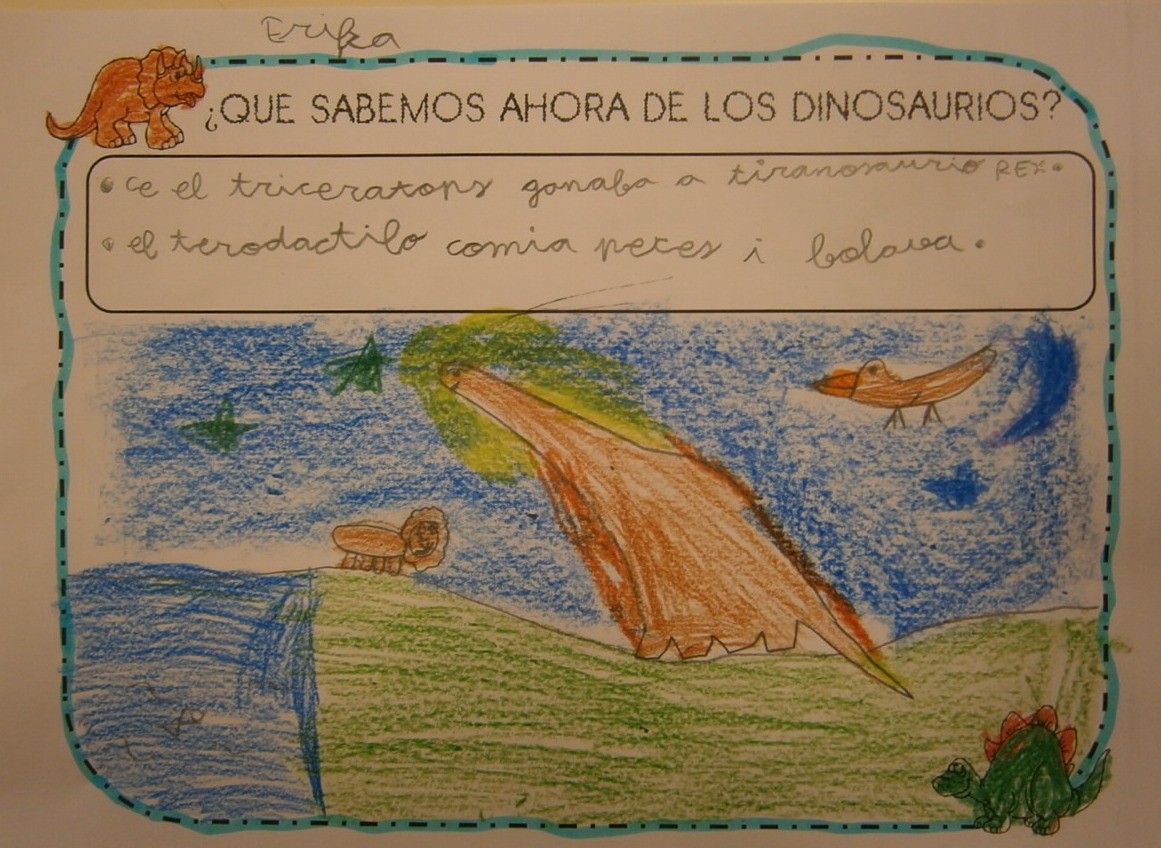 Erika
¿QUE SABEMOS AHORA DE LOS DINOSAURIOS?
• ce el triceratops ganaba a tiranosaurio REX.
• el terodactilo comia peces i bolava.